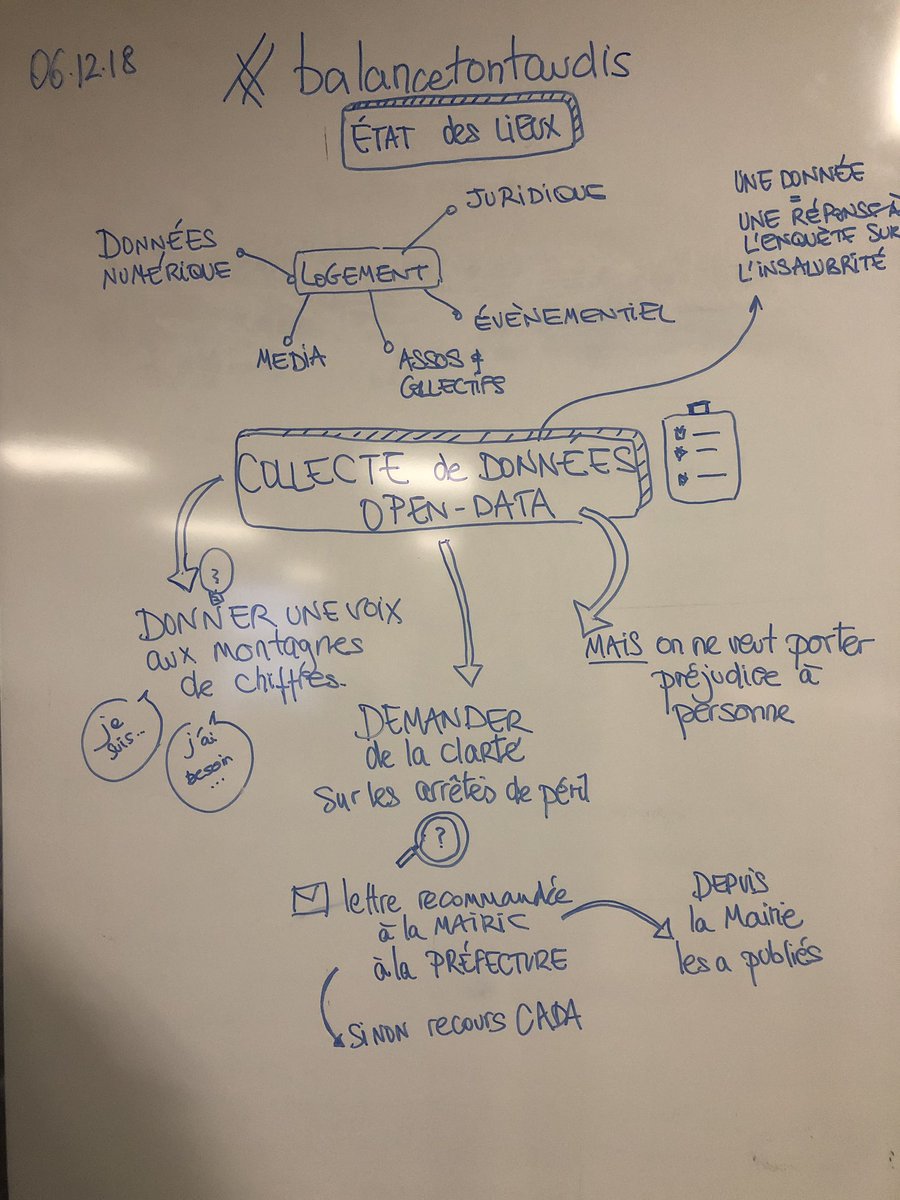 06.12.18
# balancetontaudis
ÉTAT des LIEUX
JURIDIQUE
DONNÉES
NUMÉRIQUE
LOGEMENT
ÉVÈNEMENTIEL
MEDIA
ASSOS &
COLLECTIFS
UNE DONNÉE
=
UNE RÉPONSE À
L'ENQUÊTE SUR
L'INSALUBRITÉ
COLLECTE de DONNÉES
OPEN-DATA
?
DONNER UNE VOIX
aux montagnes
de chiffres.
je
suis...
j'ai
besoin
...
MAIS on ne veut porter
préjudice à
personne
DEMANDER
de la clarté
sur les arrêtés de péril
?
lettre recommandée
à la MAIRIE
à la PRÉFECTURE
DEPUIS
la Mairie
les a publiés
SINON recours CADA